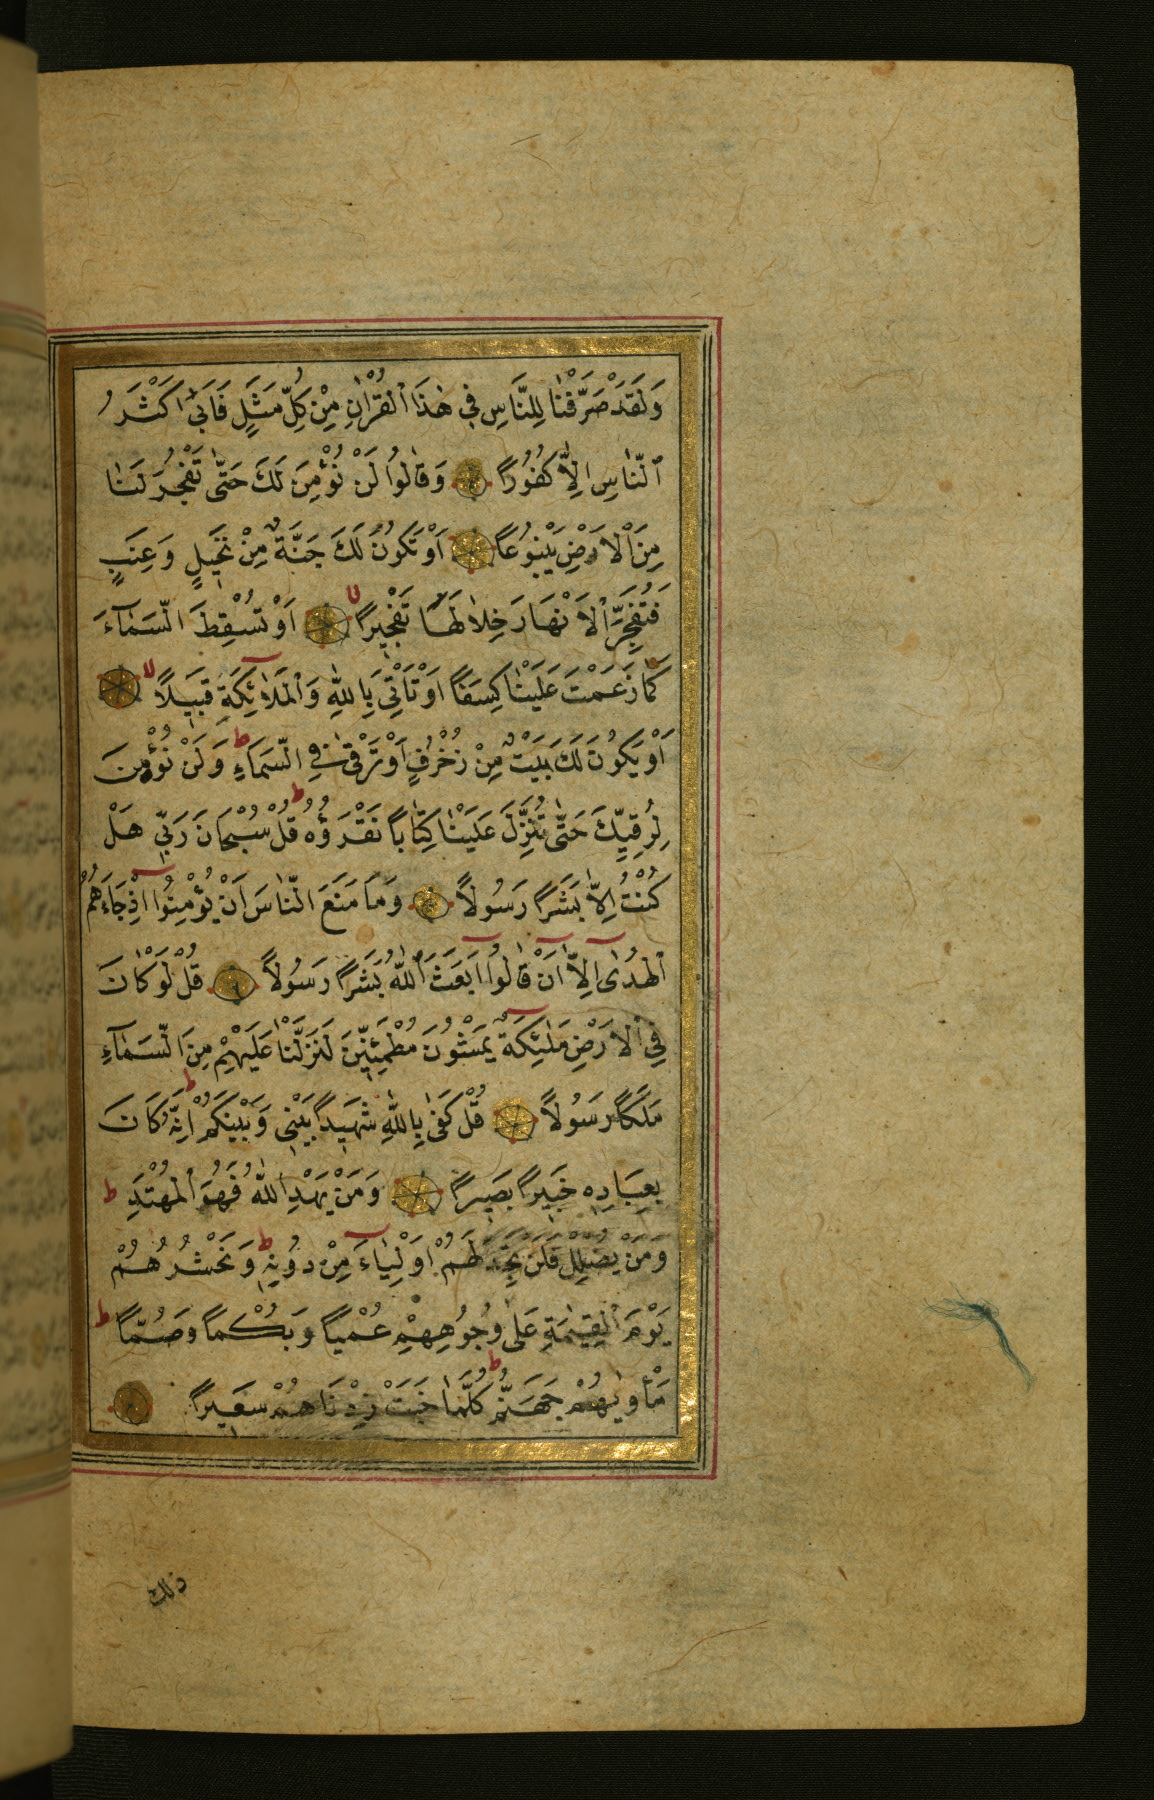 وَلَقَدْ صَرَّفْنَا لِلنَّاسِ فِي هٰذَا الْقُرْاٰنِ مِنْ كُلِّ مَثَلٍ فَاَبٰى اَكْثَرُ
النَّاسِ اِلَّا كُفُورًا وَقَالُوا لَنْ نُؤْمِنَ لَكَ حَتّٰى تَفْجُرَ لَنَا
مِنَ الْاَرْضِ يَنْبُوعًا اَوْ تَكُونَ لَكَ جَنَّةٌ مِنْ نَخِيلٍ وَعِنَبٍ
فَتُفَجِّرَ الْاَنْهَارَ خِلَالَهَا تَفْجِيرًا ۙ اَوْ تُسْقِطَ السَّمَآءَ
كَمَا زَعَمْتَ عَلَيْنَا كِسَفًا اَوْ تَأْتِيَ بِاللّٰهِ وَالْمَلٰٓائِكَةِ قَبِيلًا ۙ
اَوْ يَكُونَ لَكَ بَيْتٌ مِنْ زُخْرُفٍ اَوْ تَرْقٰى فِي السَّمَاءِ ط وَلَنْ نُؤْمِنَ
لِرُقِيِّكَ حَتّٰى تُنَزِّلَ عَلَيْنَا كِتَابًا نَقْرَؤُهُ ط قُلْ سُبْحَانَ رَبِّي هَلْ
كُنْتُ اِلَّا بَشَرًا رَسُولًا وَمَا مَنَعَ النَّاسَ اَنْ يُؤْمِنُوا اِذْ جَآءَهُمُ
الْهُدٰٓى اِلَّٓا اَنْ قَالُٓوا اَبَعَثَ اللّٰهُ بَشَرًا رَسُولًا قُلْ لَوْ كَانَ
فِي الْاَرْضِ مَلٰٓئِكَةٌ يَمْشُونَ مُطْمَئِنِّينَ لَنَزَّلْنَا عَلَيْهِمْ مِنَ السَّمَآءِ
مَلَكًا رَسُولًا قُلْ كَفٰى بِاللّٰهِ شَهِيدًا بَيْنِي وَبَيْنَكُمْ ط اِنَّهُ كَانَ
بِعِبَادِهِ خَبِيرًا بَصِيرًا وَمَنْ يَهْدِ اللّٰهُ فَهُوَ الْمُهْتَدِ ط
وَمَنْ يُضْلِلْ فَلَنْ تَجِدَ لَهُمْ اَوْلِيَآءَ مِنْ دُونِهِ ط وَنَحْشُرُهُمْ
يَوْمَ الْقِيٰمَةِ عَلٰى وُجُوهِهِمْ عُمْيًا وَبُكْمًا وَصُمًّا ط
مَأْوٰيهُمْ جَهَنَّمُ ط كُلَّمَا خَبَتْ زِدْنَاهُمْ سَعِيرًا
ذلك